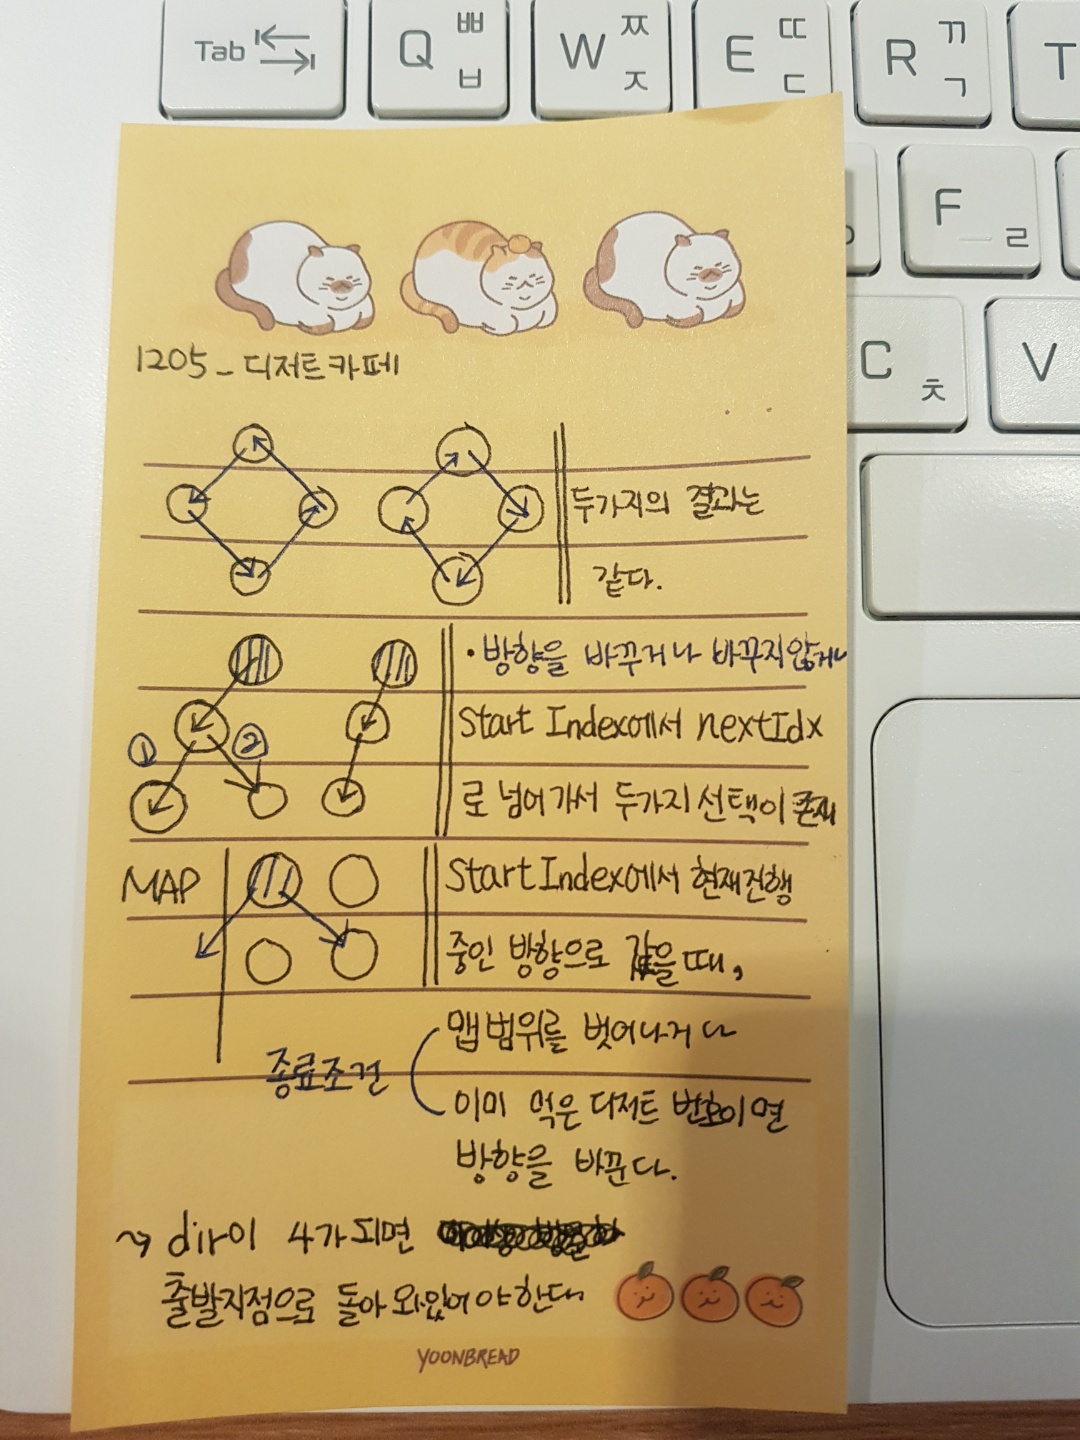 Tab
Q ㅃ ㅂ
W ㅉ ㅈ
E ㄸ ㄷ
R ㄲ ㄱ
T
F ㄹ
C ㅊ
V
1205_디저트카페
두가지의 결과는
같다.
·방향을 바꾸거나 바꾸지않거나
① ②
Start Index에서 nextIdx
로 넘어가서 두가지 선택이 존재
MAP
Start Index에서 현재진행
중인 방향으로 갔을때,
맵범위를 벗어나거나
종료조건
이미 먹은 디저트 번호이면
방향을 바꾼다.
~> dir이 4가되면
출발지점으로 돌아 와있어야한다
YOONBREAD